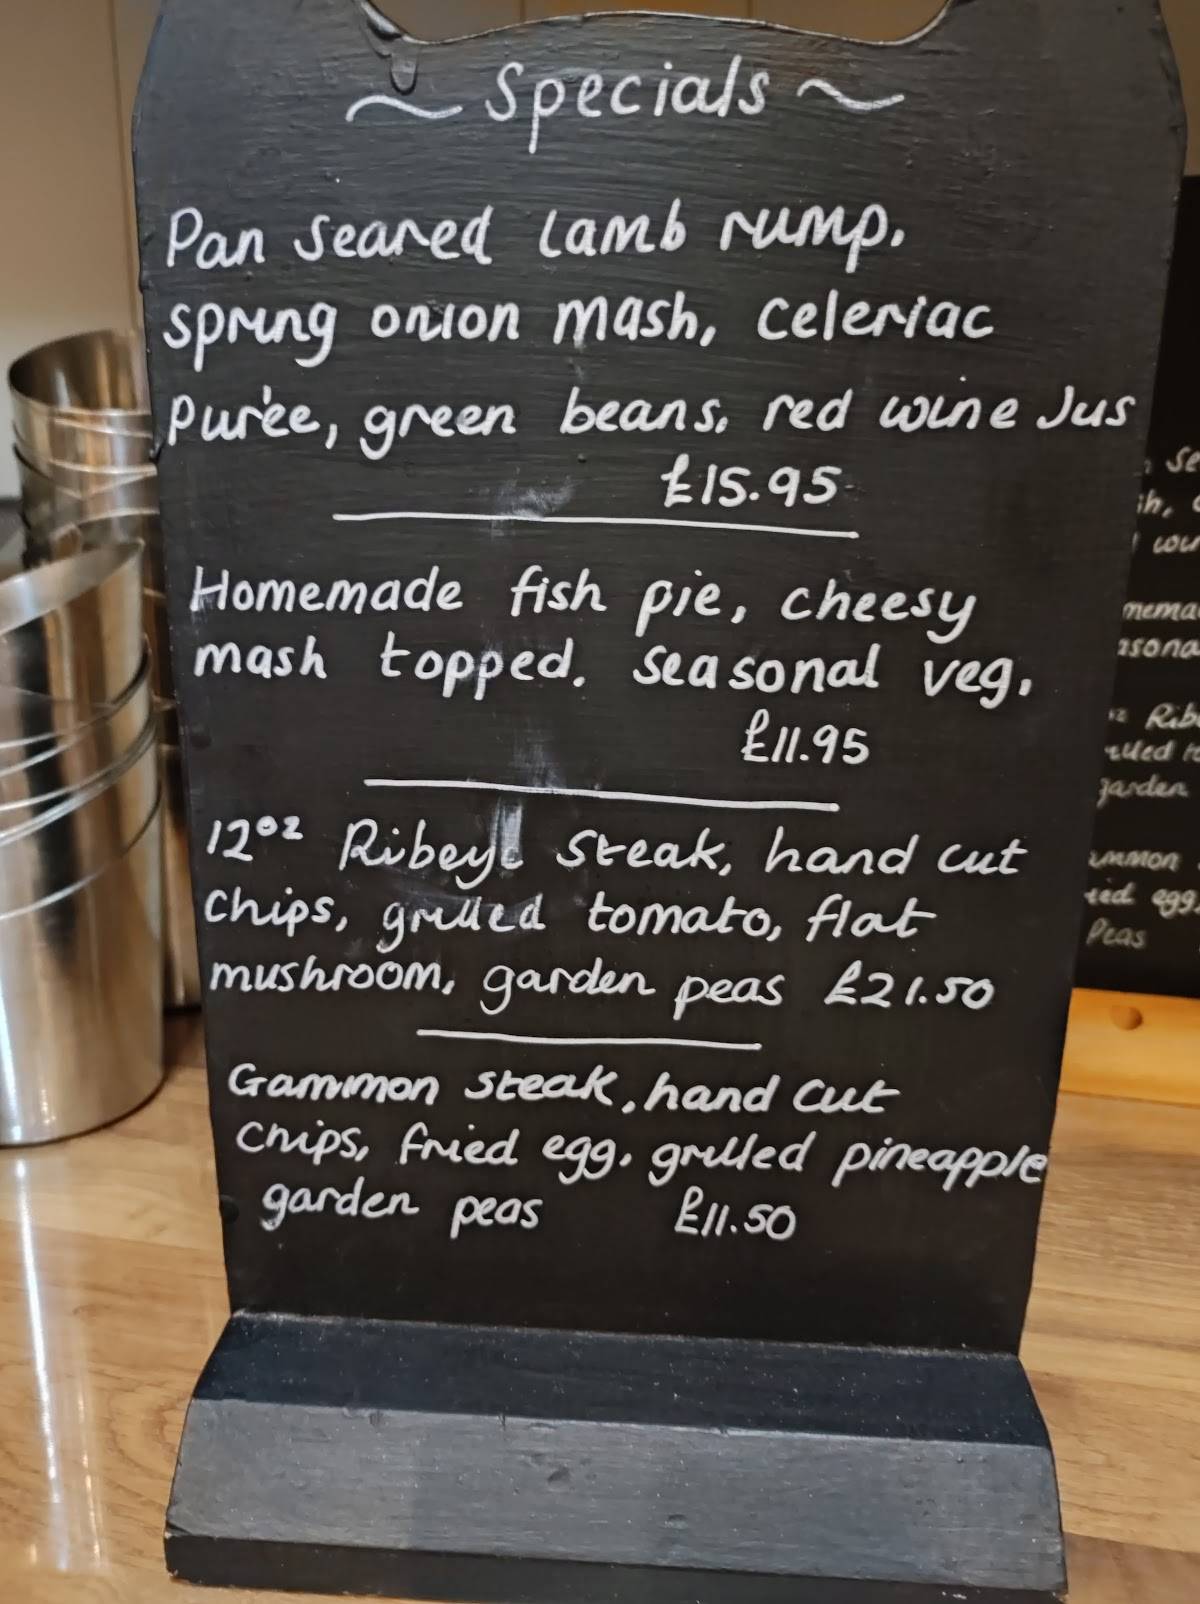 ~ Specials ~
Pan seared lamb rump,
spring onion mash, celeriac
Purée, green beans, red wine Jus
£15.95
Homemade fish pie, cheesy
mash topped, seasonal veg,
£11.95
12oz Ribeye steak, hand cut
chips, grilled tomato, flat
mushroom, garden peas £21.50
Gammon steak, hand cut
chips, fried egg, grilled pineapple
garden peas £11.50
garden
egg,
Peas